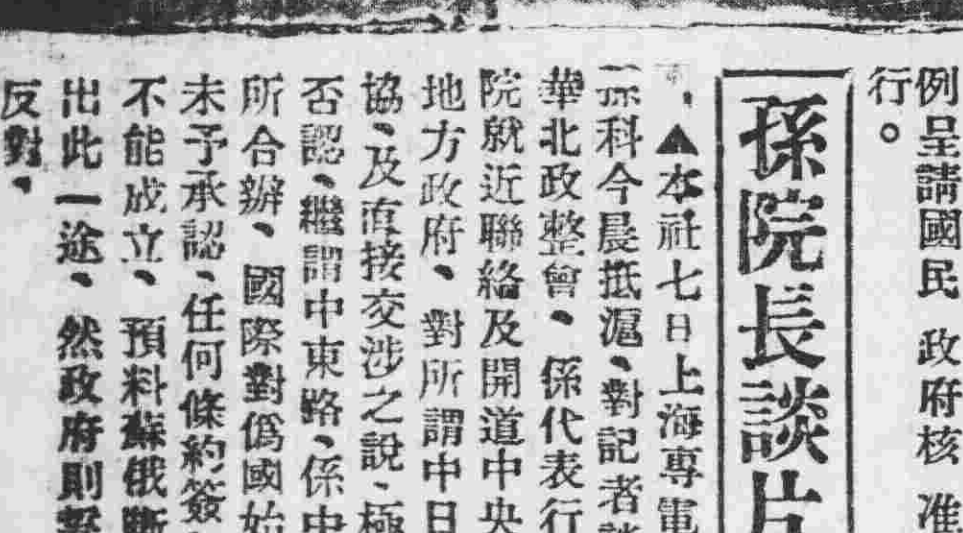 例呈請國民政府核准
行。
孫院長談片
▲本社七日上海專電
孫科今晨抵滬、對記者談
華北政整會、係代表行
院就近聯絡及開道中央
地方政府、對所謂中日
協、及直接交涉之說、極
否認、繼謂中東路、係中
所合辦、國際對僞國始
未予承認、任何條約簽
不能成立、預料蘇俄斷
出此一途、然政府則堅
反對、